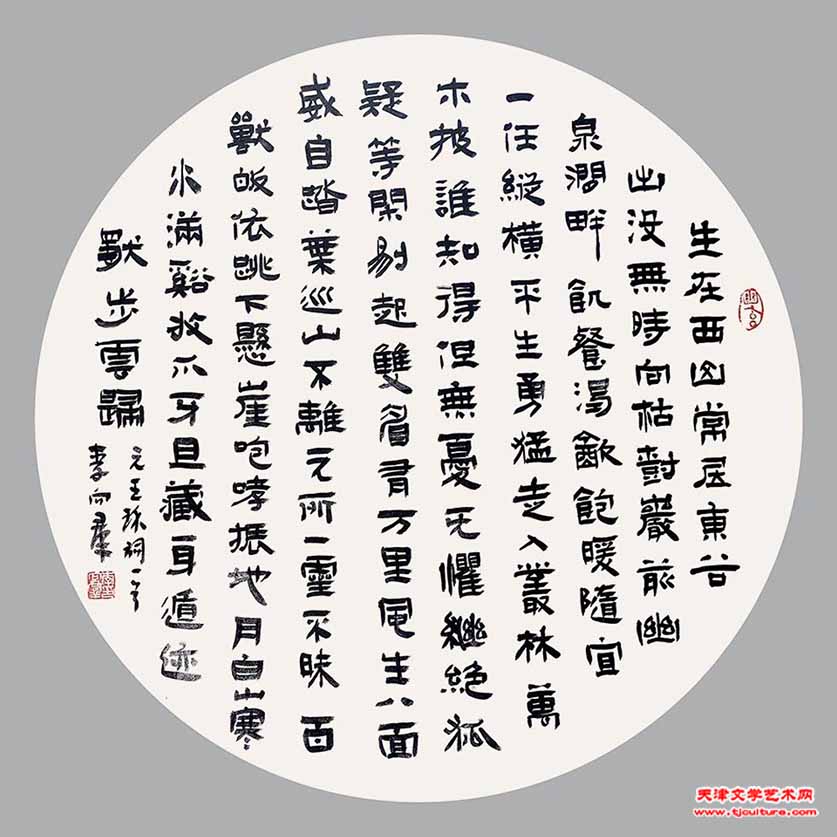 生在西山常居東谷
出没無時向枯對巖前幽
泉澗畔飢餐渴飲飽暖隨宜
一任縱橫平生勇猛走入叢林萬
木披誰知得但無憂无懼繼絶狐
疑等閑剔起雙眉有万里風生八面
威自踏葉巡山不離元所一靈不昧百
獸皈依跳下懸崖咆哮振地月白山寒
水滿谿收爪牙且藏身遁迹
默步雲歸
元王玠詞一首
李向群
天津文学艺术网
www.tjculture.com